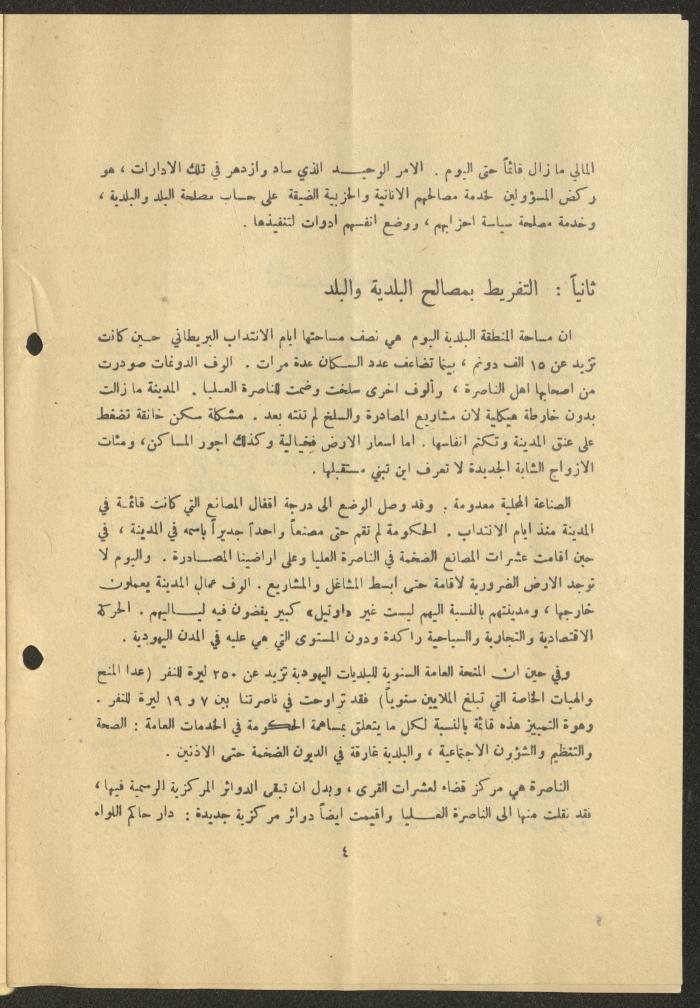 المالي ما زال قائماً حتى اليوم . الامر الوحيد الذي ساد وازدهر في تلك الادارات ، هو
ركض المسؤولين لخدمة مصالحهم الانانية والحزبية الضيقة على حساب مصلحة البلد والبلدية ،
وخدمة مصلحة سياسة احزابهم ، ووضع انفسهم ادوات لتنفيذها .
ثانياً : التفريط بمصالح البلدية والبلد
ان مساحة المنطقة البلدية اليوم هي نصف مساحتها ايام الانتداب البريطاني حين كانت
تزيد عن ١٥ الف دونم ، بينما تضاعف عدد السكان عدة مرات . الوف الدونمات صودرت
من اصحابها اهل الناصرة ، وألوف اخرى سلخت وضمت للناصرة العليا . المدينة ما زالت
بدون خارطة هيكلية لان مشاريع المصادرة والسلخ لم تنته بعد . مشكلة سكن خانقة تضغط
على عنق المدينة وتكتم انفاسها . اما اسعار الارض فخيالية وكذلك اجور المساكن، ومئات
الازواج الشابة الجديدة لا تعرف اين تبني مستقبلها .
الصناعة المحلية معدومة . وقد وصل الوضع الى درجة اقفال المصانع التي كانت قائمة في
المدينة منذ ايام الانتداب . الحكومة لم تقم حتى مصنعاً واحداً جديراً باسمه في المدينة ، في
حين اقامت عشرات المصانع الضخمة في الناصرة العليا وعلى اراضينا المصادرة . واليوم لا
توجد الارض الضرورية لاقامة حتى ابسط المشاغل والمشاريع . الوف عمال المدينة يعملون
خارجها ، ومدينتهم بالنسبة اليهم ليست غير «اوتيل» كبير يقضون فيه لياليهم . الحركة
الاقتصادية والتجارية والسياحية راكدة ودون المستوى التي هي عليه في المدن اليهودية .
وفي حين ان المنحة العامة السنوية للبلديات اليهودية تزيد عن ٢٥٠ ليرة للنفر (عدا المنح
والهبات الخاصة التي تبلغ الملايين سنوياً) فقد تراوحت في ناصرتنا بين ٧ و ١٩ ليرة للنفر .
وهوة التمييز هذه قائمة بالنسبة لكل ما يتعلق بمساهمة الحكومة في الخدمات العامة : الصحة
والتنظيم والشؤون الاجتماعية ، والبلدية غارقة في الديون الضخمة حتى الاذنين .
الناصرة هي مركز قضاء لعشرات القرى ، وبدل ان تبقى الدوائر المركزية الرسمية فيها ،
فقد نقلت منها الى الناصرة العليا واقيمت ايضاً دوائر مركزية جديدة : دار حاكم اللواء
٤